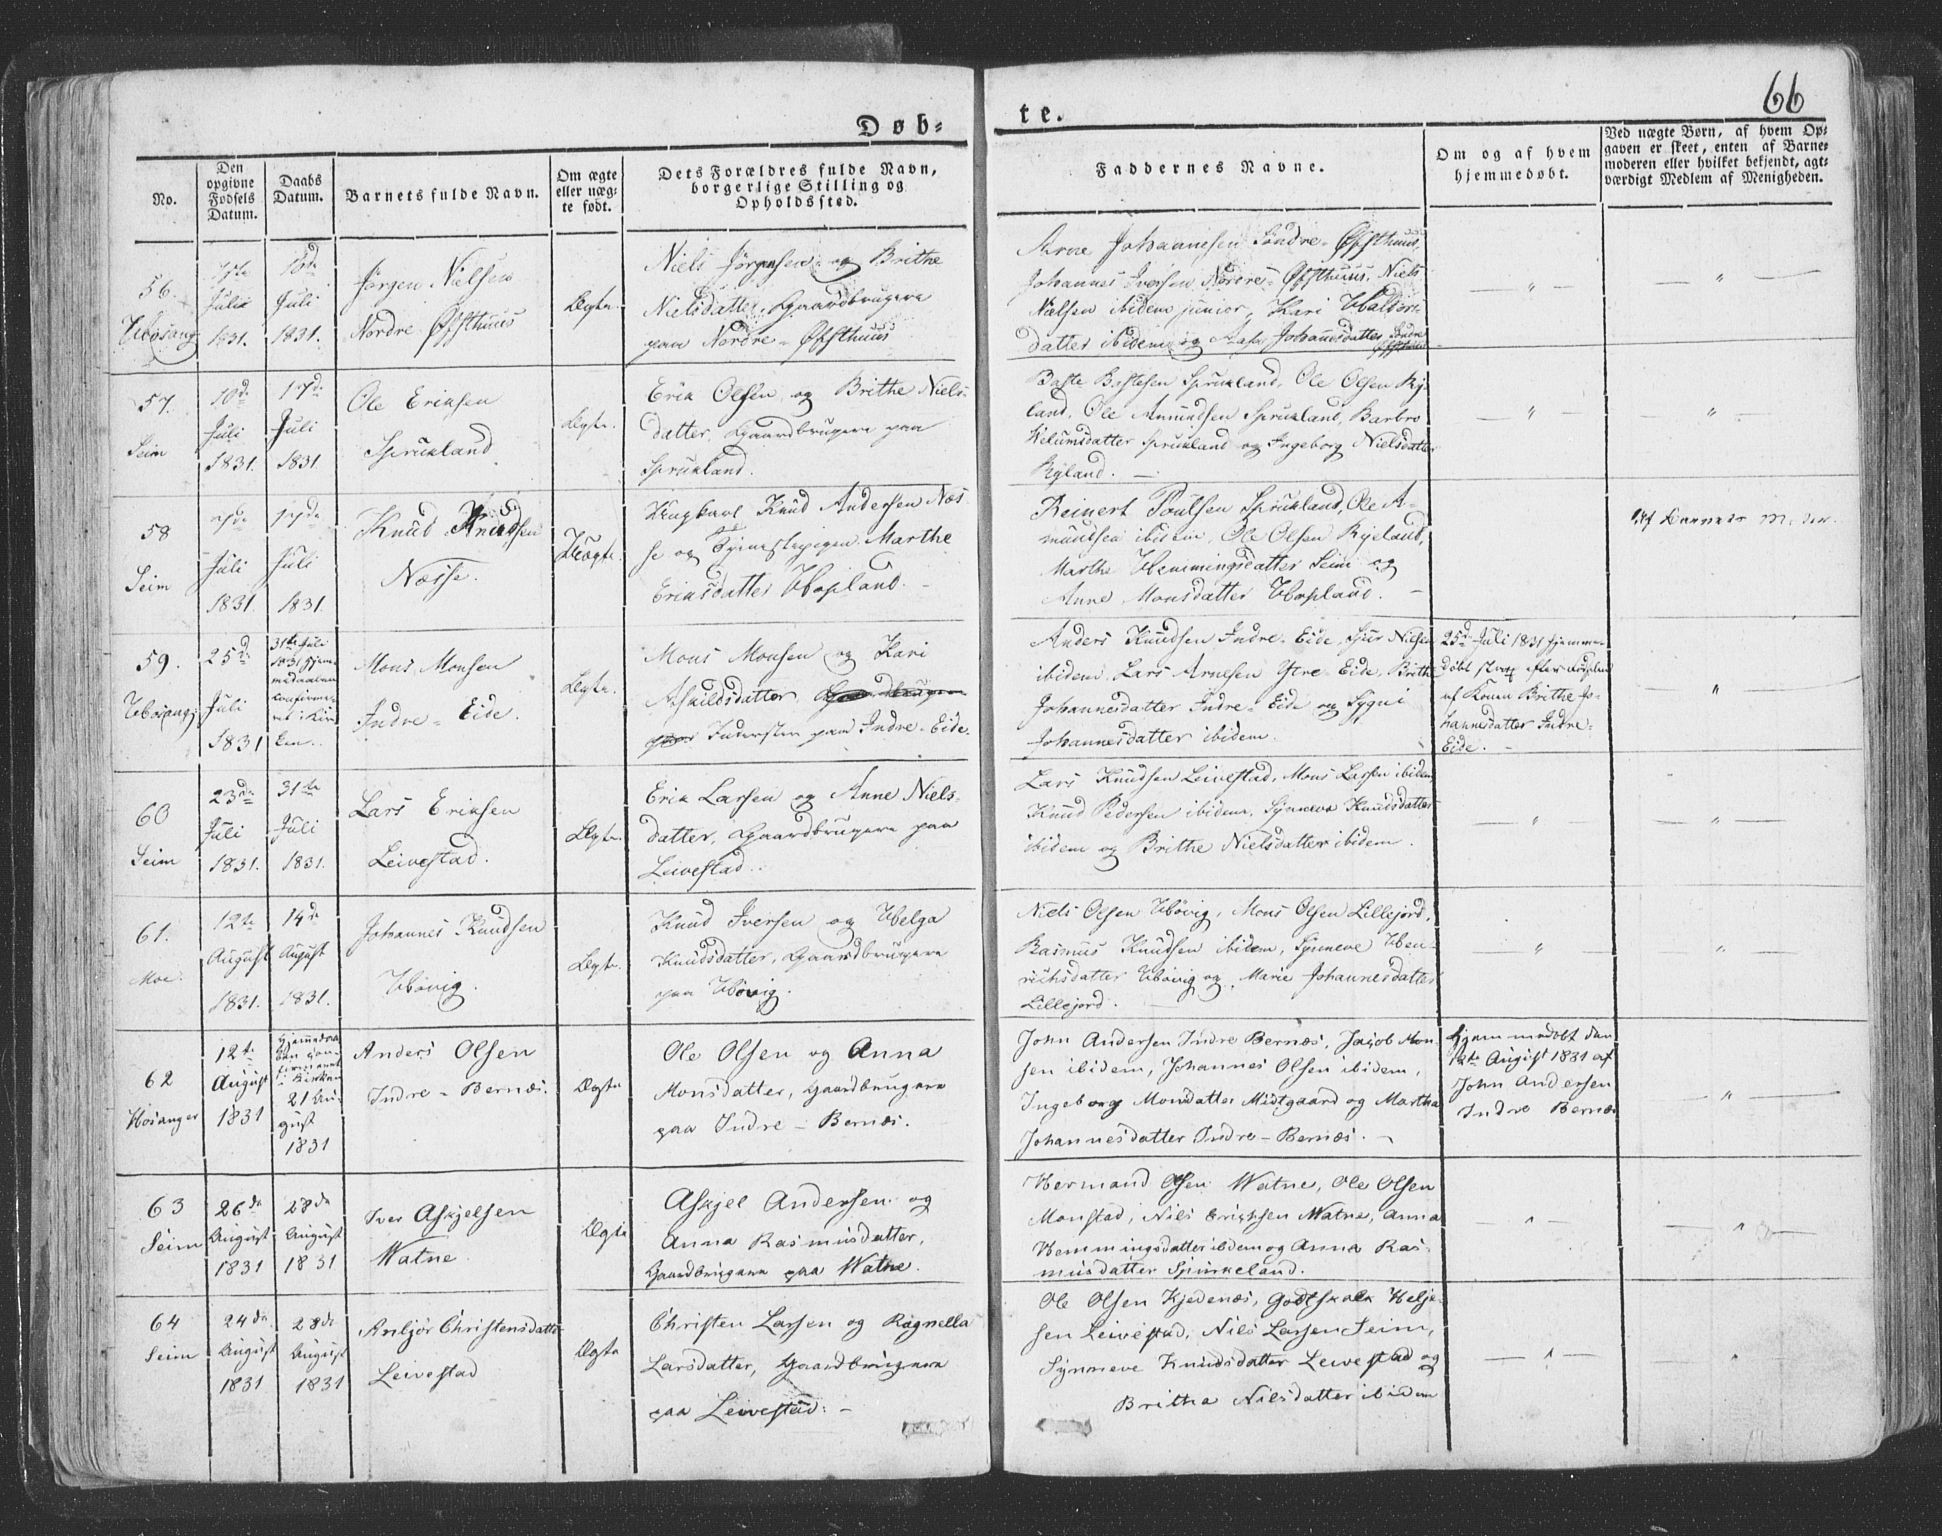 66
Døb=
te.
No.
Den
opgivne
Fødsels
Datum.
Daabs
Datum.
Barnets fulde Navn.
Om ægte
eller uæg=
te født.
Dets Forældres fulde Navn,
borgerlige Stilling og
Opholdssted.
Faddernes Navne.
Om og af hvem
hjemmedøbt.
Ved uægte Børn, af hvem Op=
gaven er skeet, enten af Barne=
moderen eller hvilket bekjendt, agt=
værdigt Medlem af Menigheden.
56.
Hosang
7de
Juli
1831.
10de
Juli
1831.
Jørgen Nielsen
Nordre Øfsthuus
Ægte.
Niels Jørgensen og Brithe
Nielsdatter, Gaardbrugere
paa Nordre-Øfsthuus
Arne Johannesen Søndre-Øfsthuus,
Johannes Iversen Nordre-Øfsthuus, Niels
Nielsen ibidem junior, Kari
datter ibidem og Johannesdatter Søndre
Øfsthuus
57.
Seim
10de
Juli
1831.
17de
Juli
1831.
Ole Eriksen
Sprukland
Ægte.
Erik Olsen og Brithe Niels-
datter, Gaardbrugere paa
Sprukland.
Baste Bastesen Sprukland, Ole Olsen Ry-
land, Ole Amundsen Sprukland, Barbro
datter Sprukland og Ingeborg Nielsdatter
Ryland.
58
Seim
Juli
1831.
17de
Juli
1831.
Knud Knudsen
Næsse.
Uægte.
Ungkarl Knud Andersen Næs-
se og Tjenestepigen Marthe
Eriksdatter Hopland.
Reinert Poulsen Sprukland, Ole A-
mundsen ibidem, Ole Olsen Ryeland,
Marthe Hemmingsdatter Seim og
Anne Monsdatter Hopland.
Af Barnets Moder.
59.
Hosang
25de
Juli
1831
31te Juli
1831 hjem-
medaaben
confirme-
ret i Kir-
ken.
Mons Monsen
Indre-Eide.
Ægte.
Mons Monsen og Kari
Askildsdatter
Inderster paa Indre-Eide.
Anders Knudsen Indre-Eide, Sjur Nielsen
ibidem, Lars Arnesen Ytre-Eide, Brithe
Johannesdatter Indre-Eide og Sygni
Johannesdatter ibidem.
25de Juli 1831 hjemme-
døbt strax efter Fødselen
af Konen Brithe Jo-
hannesdatter Indre-
Eide.
60
Seim
23de
Juli
1831.
31te
Juli
1831.
Lars Eriksen
Leivestad.
Ægte.
Erik Larsen og Anne Niels-
datter, Gaardbrugere paa
Leivestad.
Lars Knudsen Leivestad, Mons Larsen ibidem,
Knud Pedersen ibidem, Synneva Knudsdatter
ibidem og Brithe Nielsdatter ibidem.
61.
Moe.
12te
August
1831.
14de
August
1831.
Johannes Knudsen
Høvig.
Ægte.
Knud Iversen og Helga
Knudsdatter, Gaardbrugere
paa Høvig.
Niels Olsen Høvig, Mons Olsen Lillejord,
Rasmus Knudsen ibidem, Synneve Hen-
richsdatter Høvig og Marie Johannesdatter
Lillejord.
62
Hosanger
12te
August
1831
Hjemmedaa-
ben con-
firmeret
i Kirken
21 Au-
gust
1831
Anders Olsen
Indre-Bernæs.
Ægte
Ole Olsen og Anna
Monsdatter, Gaardbrugere
paa Indre-Bernæs.
John Andersen Indre Bernæs, Jacob Mon-
sen ibidem, Johannes Olsen ibidem,
Ingeborg Monsdatter Midtgaard og Martha
Johannesdatter Indre-Bernæs.
Hjemmedøbt den
12te August 1831 af
John Andersen
Indre Bernæs
63
Seim
26de
August
1831
28de
August
1831
Iver Askjelsen
Watne
Ægte
Askjel Andersen og
Anna Rasmusdatter,
Gaardbrugere paa Watne.
Hermand Olsen Watne, Ole Olsen
Monstad, Nils Erichsen Watne, Anna
Hemmingsdatter ibidem og Anna Ras-
musdatter Spurkeland.
64
Seim
24de
August
1831
28de
August
1831
Anljør Christensdatter
Leivestad
Ægte
Christen Larsen og Ragnella
Larsdatter, Gaardbrugere
paa Leivestad.
Ole Olsen Kjedenæs, Godtskalk Helje-
sen Leivestad, Nils Larsen Seim,
Synneve Knudsdatter Leivestad og
Britha Nilsdatter ibidem